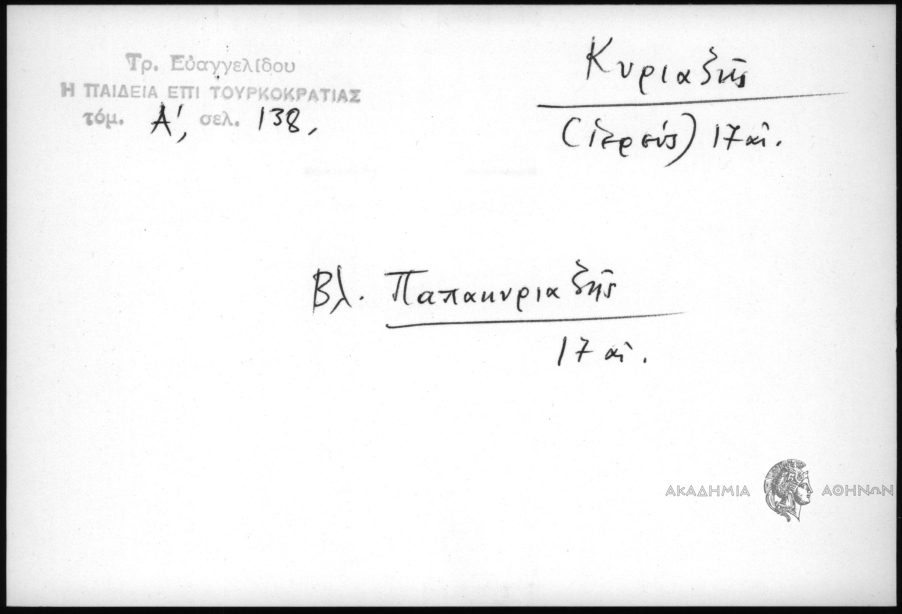 Τρ. Εὐαγγελίδου
Η ΠΑΙΔΕΙΑ ΕΠΙ ΤΟΥΡΚΟΚΡΑΤΙΑΣ
τόμ. Α', σελ. 138,
Κυριαζῆς
(ἱερεύς) 17 αἰ.
Βλ. Παπακυριαζῆς
17 αἰ.
ΑΚΑΔΗΜΙΑ ΑΘΗΝΩΝ